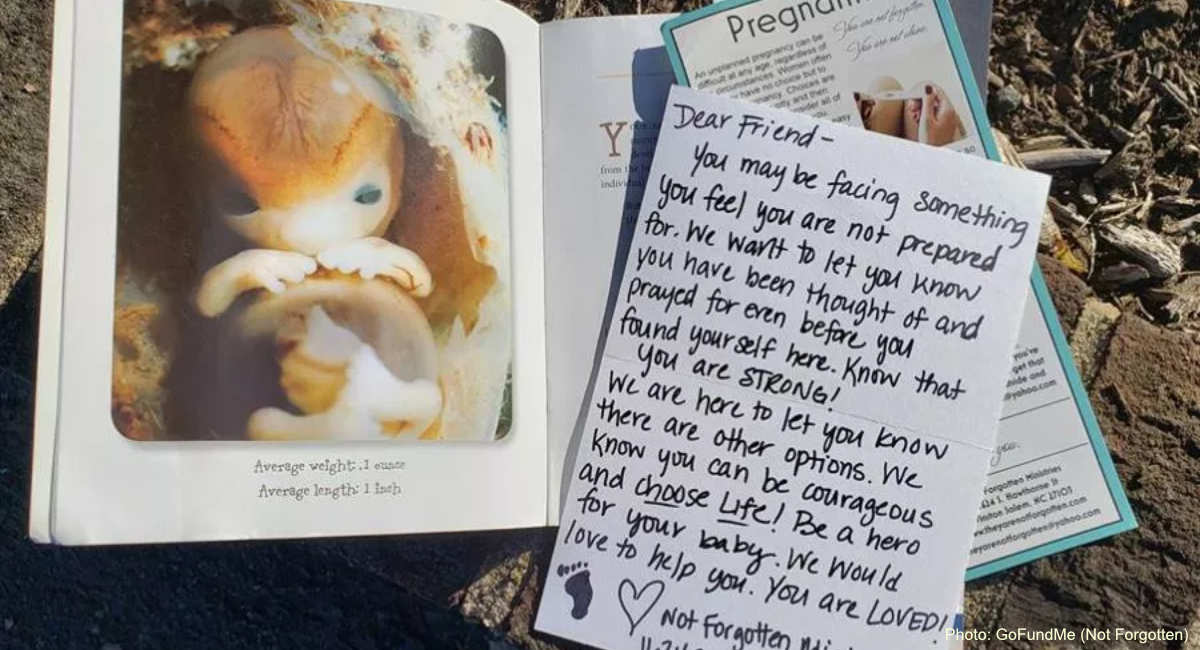 Average weight: .1 ounce
Average length: 1 inch
Y
from the
individual
Pregnan
You are not forgotten.
You are not alone.
An unplanned pregnancy can be
difficult at any age, regardless of
circumstances. Women often
have no choice but to
Choices are
and then
consider all of
easy
so
Dear Friend-
You may be facing something
you feel you are not prepared
for. We want to let you know
you have been thought of and
prayed for even before you
found yourself here. Know that
you are STRONG!
We are here to let you know
there are other options. We
know you can be courageous
and choose Life! Be a hero
for your baby. We would
love to help you. You are LOVED!
Not Forgotten
you've
get that
and
@yahoo.com
you.
Forgotten Ministries
S. Hawthorne
Salem, NC 27103
theyarenotforgotten.com
theyarenotforgotten@yahoo.com
Photo: GoFundMe (Not Forgotten)